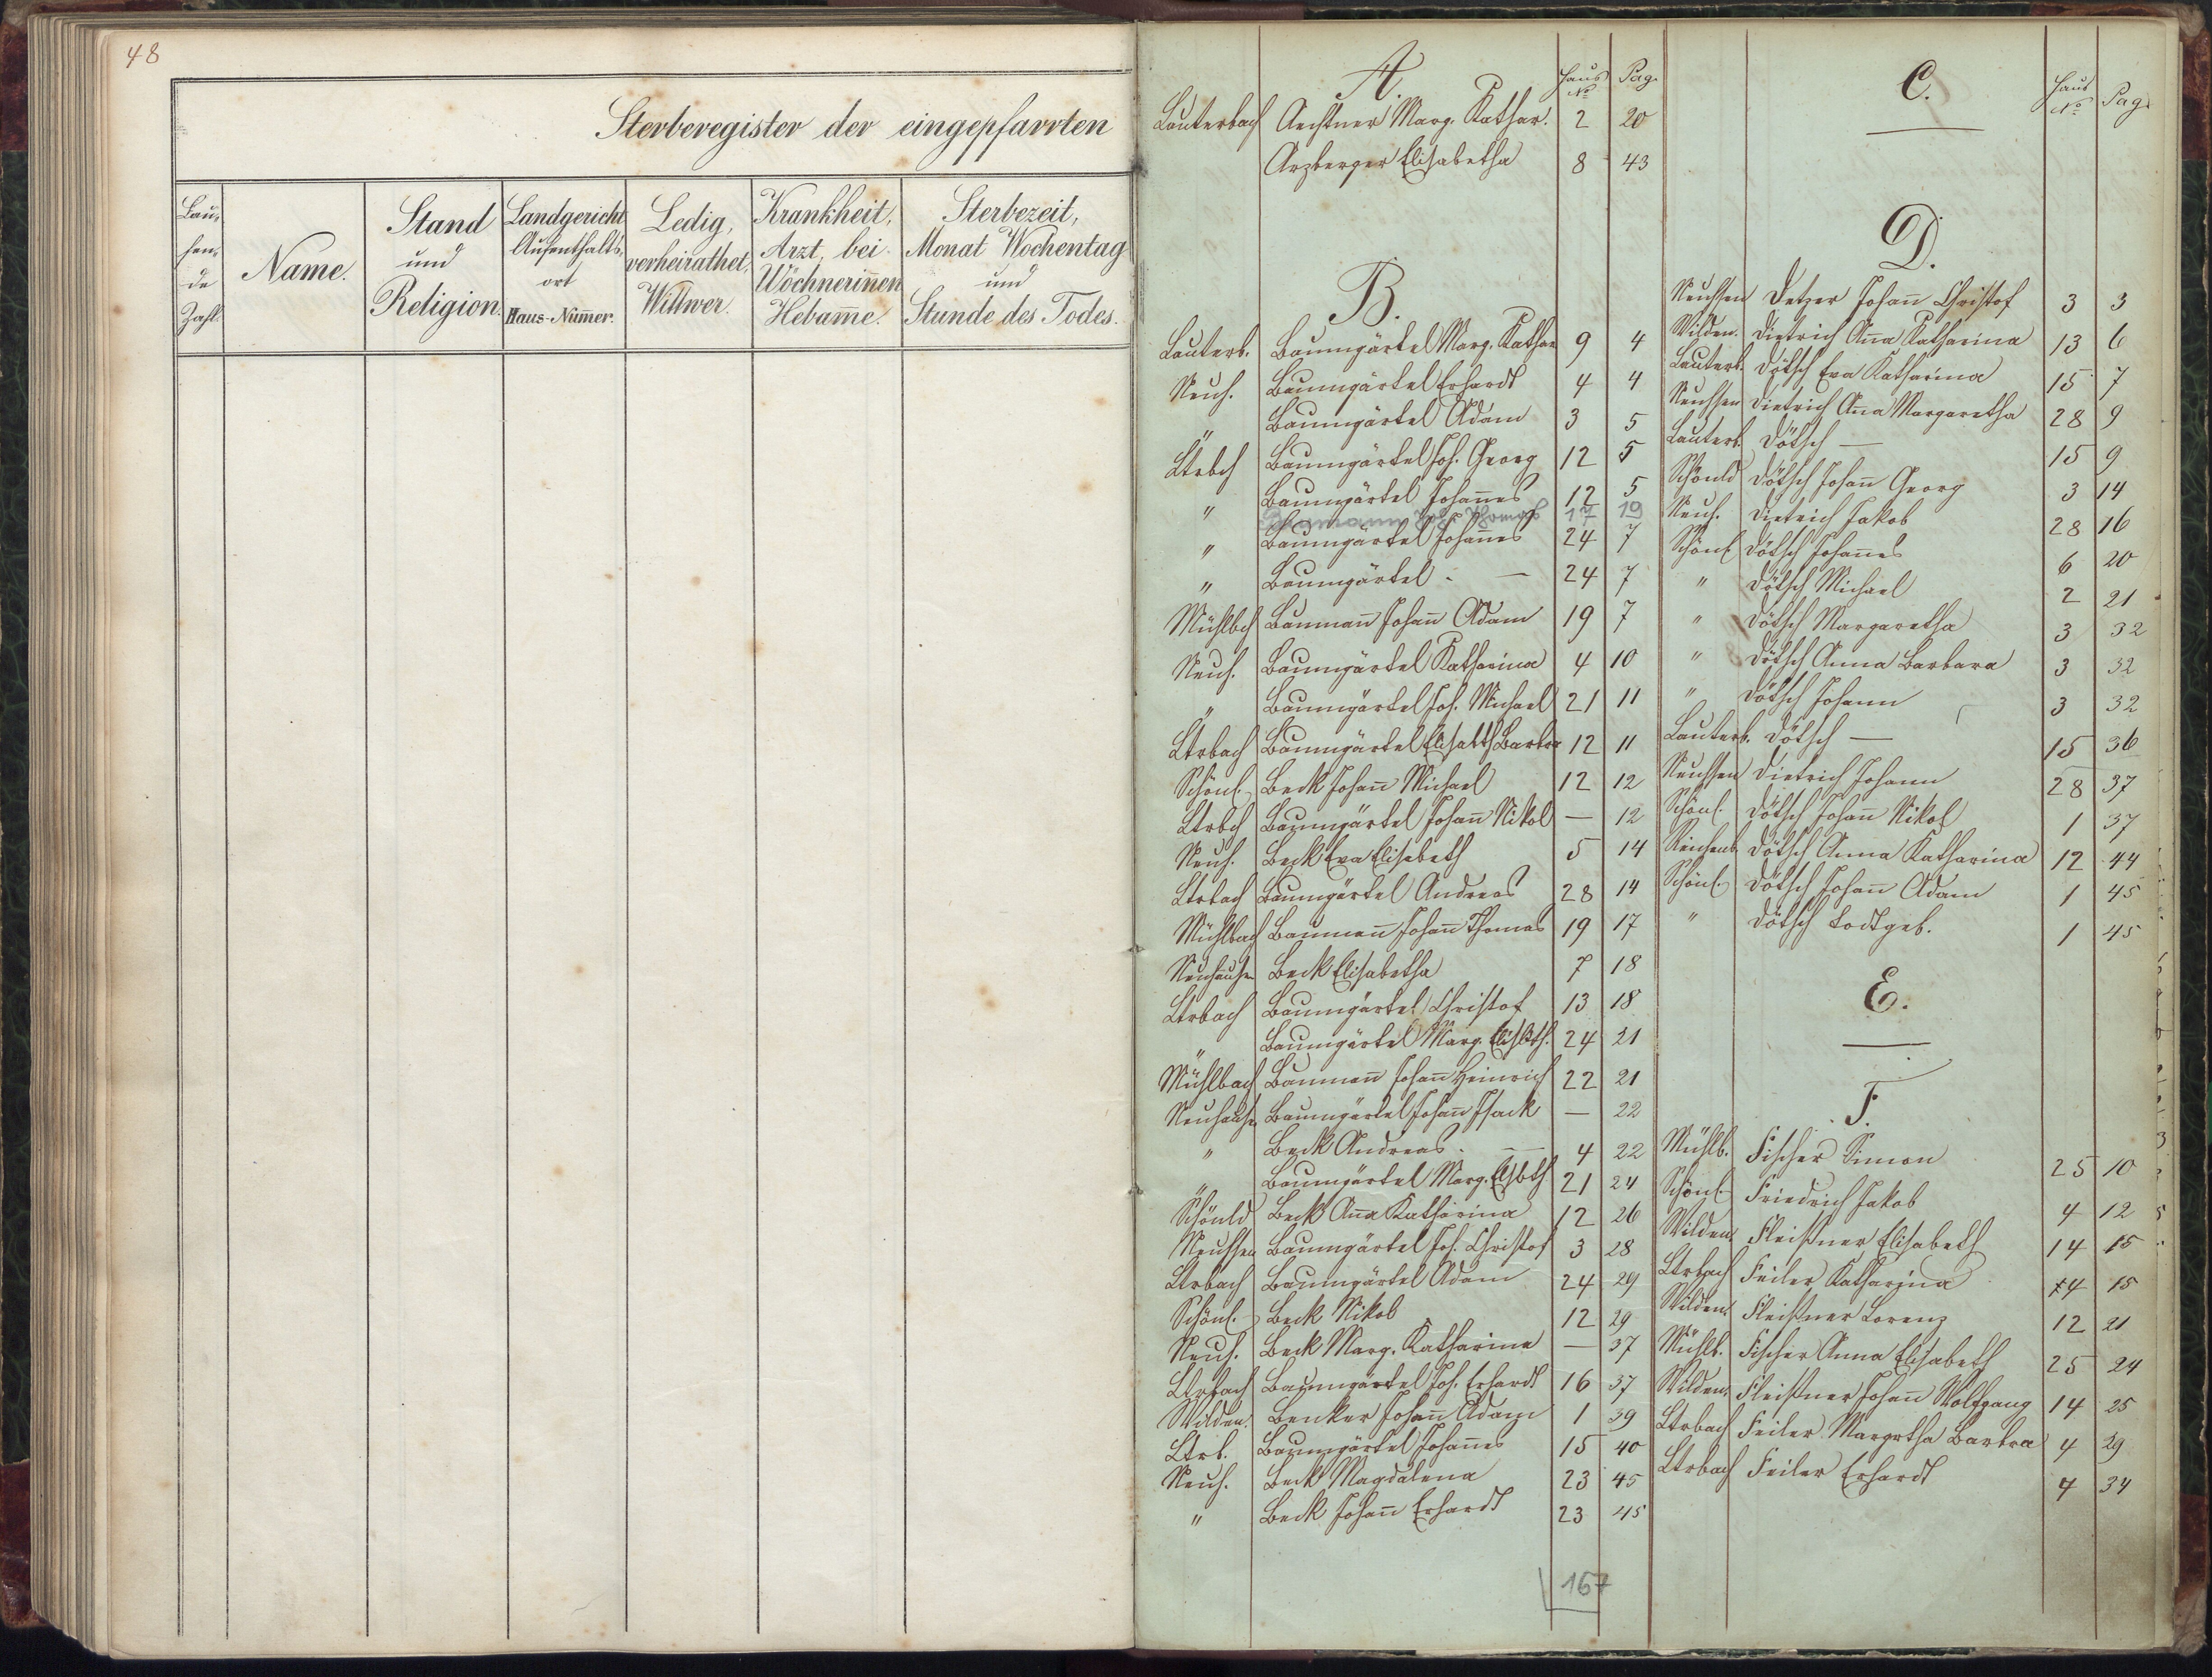 48
Sterberegister der eingepfarrten
Lau-
fen-
de
Zahl.
Name.
Stand
und
Religion.
Landgericht
Aufenthalts-
ort
Haus-Num̅er.
Ledig,
verheirathet,
Wittwer.
Krankheit,
Arzt, bei
Wöchnerin̅en
Hebam̅e.
Sterbezeit,
Monat Wochentag
und
Stunde des Todes.
A. Haus No Pag.
Lauterbach Aechtner Marg. Kathar. 2 20
Arzberger Elisabetha 8 43
B.
Lauterb. Baumgärtel Marg. Kathar 9 4
Neuh. Baumgärtel Erhardt 4 4
" Baumgärtel Adam 3 5
Ltrbch Baumgärtel Joh. Georg 12 5
" Baumgärtel Johan̅es 12 5
Baumann Joh. Thomas 17 19
" Baumgärtel Johan̅es 24 7
" Baumgärtel — 24 7
Mühlbch Bauman̅ Johan̅ Adam 19 7
Neuh. Baumgärtel Katharina 4 10
" Baumgärtel Joh. Michael 21 11
Ltrbach Baumgärtel Elisabth Barbra 12 11
Schönl. Beck Johan̅ Michael 12 12
Ltrbch Baumgärtel Johan̅ Nikol — 12
Neuh. Beck Eva Elisabeth 5 14
Ltrbach Baumgärtel Andreas 28 14
Mühlbach Bauman̅ Johan̅ Thomas 19 17
Neuhausen Beck Elisabetha 7 18
Ltrbach Baumgärtel Christof 13 18
" Baumgärtel Marg. Elisbth. 24 21
Mühlbach Bauman̅ Johan̅ Heinrich 22 21
Neuhausen Baumgärtel Johan̅ Isack — 22
" Beck Andreas — 4 22
" Baumgärtel Marg. Elsbth 21 24
Schönld Beck An̅a Katharina 12 26
Neuhsen Baumgärtel Joh. Christof 3 28
Ltrbach Baumgärtel Adam 24 29
Schönl. Beck Nikol 12 29
Neuh. Beck Marg. Katharina — 37
Ltrbach Baumgärtel Joh. Erhardt 16 37
Wilden. Benker Johan̅ Adam 1 39
Ltrb. Baumgärtel Johan̅es 15 40
Neuh. Beck Magdalena 23 45
" Beck Johan̅ Erhardt 23 45
167
C. Haus No Pag.
D.
Neuhsen Detzer Johan̅ Christof 3 3
Wilden. Dietrich An̅a Katharina 13 6
Lauterb. Dötsch Eva Katharina 15 7
Neuhsen Dietrich An̅a Margaretha 28 9
Lauterb. Dötsch — 15 9
Schönld Dötsch Johan̅ Georg 3 14
Neuh. Dietrich Jakob 28 16
Schönl. Dötsch Johan̅es 6 20
" Dötsch Michael 2 21
" Dötsch Margaretha 3 32
" Dötsch Anna Barbara 3 32
" Dötsch Johann 3 32
Lauterb. Dötsch — 15 36
Neuhsen Dietrich Johann 28 37
Schönl. Dötsch Johan̅ Nikol 1 37
Reichenb. Dötsch Anna Katharina 12 44
Schönl. Dötsch Johan̅ Adam 1 45
" Dötsch todtgeb. 1 45
E.
F.
Mühlb. Fischer Simon 25 10
Schönl. Friedrich Jakob 4 12
Wilden. Fleißner Elisabeth 14 15
Ltrbach Feiler Katharina 4 15
Wilden. Fleißner Lorenz 12 21
Mühlb. Fischer Anna Elisabeth 25 24
Wilden. Fleißner Johan̅ Wolfgang 14 25
Ltrbach Feiler Margrtha Barbra 4 29
Ltrbach Feiler Erhardt 4 34